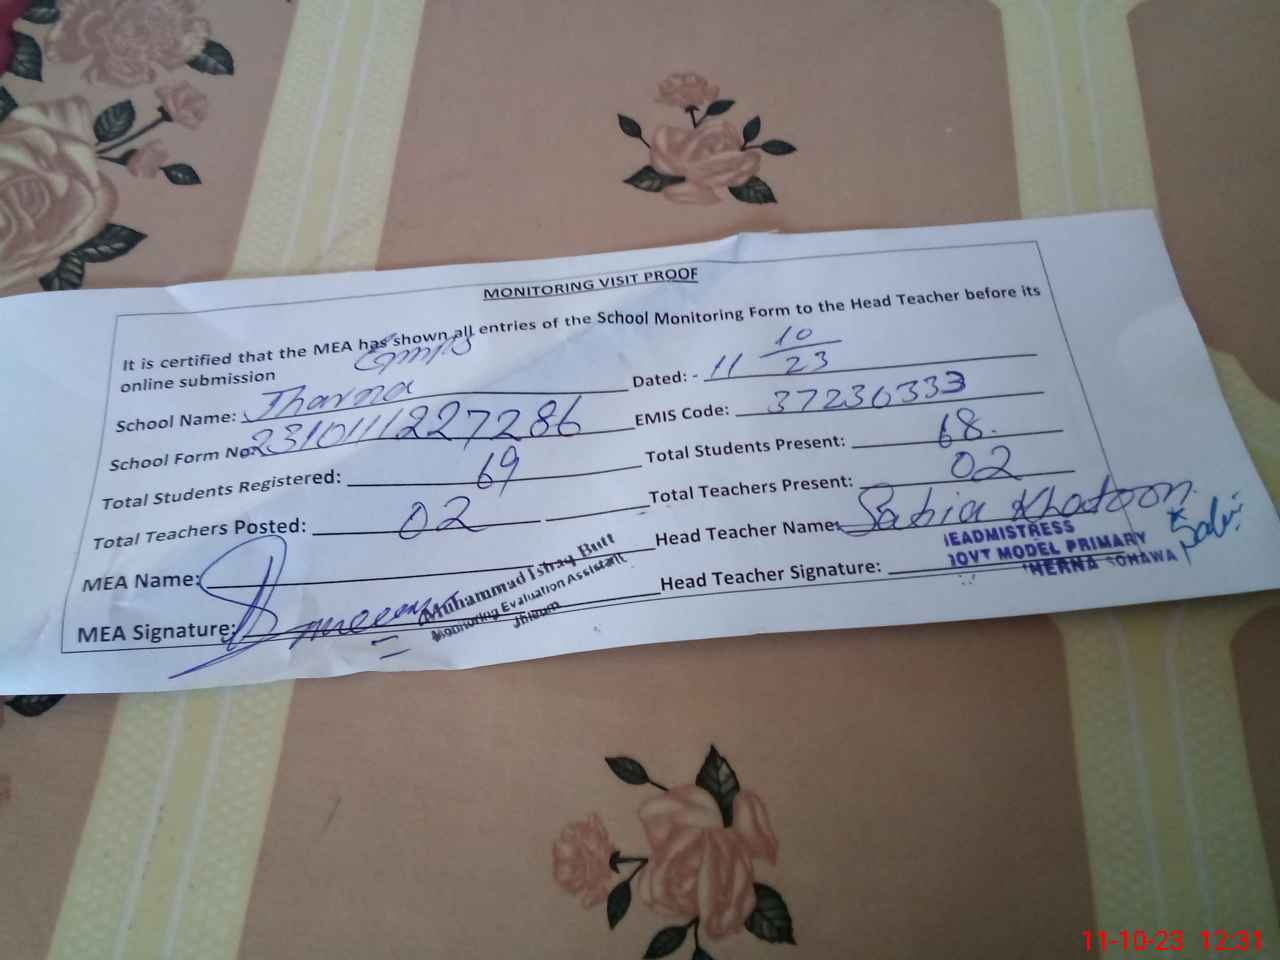 MONITORING VISIT PROOF
It is certified that the MEA has shown all entries of the School Monitoring Form to the Head Teacher before its
online submission
GMPS
School Name: Tharna Dated: - 11 10/23
School Form No. 231011227286 EMIS Code: 37230333
Total Students Registered: 69 Total Students Present: 68.
Total Teachers Posted: 02 Total Teachers Present: 02
MEA Name: Head Teacher Name: Sabia Khatoon
MEA Signature: Head Teacher Signature:
Muhammad Ishaq Butt
Monitoring Evaluation Assistant
Jhelum
HEADMISTRESS
GOVT MODEL PRIMARY
SOHAWA
11-10-23 12:31